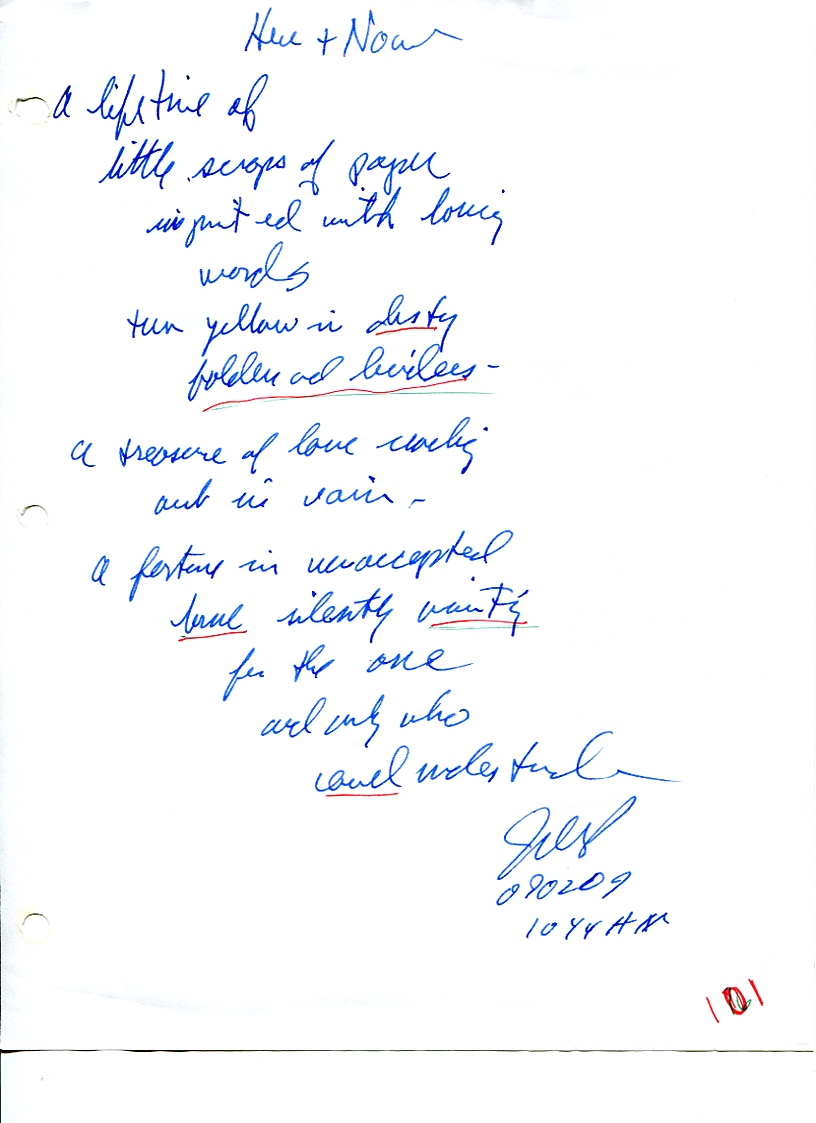 Here + Now
a lifetime of
little scraps of paper
imprinted with loving
words
turn yellow in dusty
folders and binders -
a treasure of love
out in vain -
a fortune in unaccepted
love silently waiting
for the one
and only who
could understand
090209
1044
101